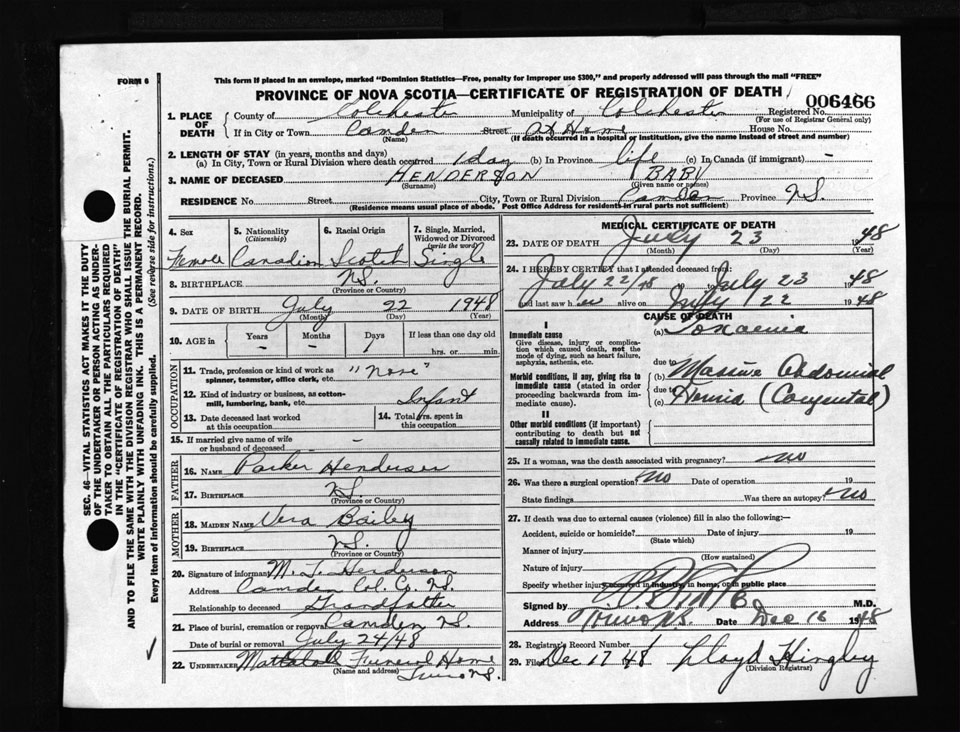 FORM 6
This form if placed in an envelope, marked "Dominion Statistics—Free, penalty for improper use $300," and properly addressed will pass through the mail "FREE"
PROVINCE OF NOVA SCOTIA—CERTIFICATE OF REGISTRATION OF DEATH
006466
1. PLACE OF DEATH
County of Colchester Municipality of Colchester Registered No.
(For use of Registrar General only)
If in City or Town Camden Street At Home House No.
(Name) (If death occurred in a hospital or institution, give the name instead of street and number)
2. LENGTH OF STAY (in years, months and days)
(a) In City, Town or Rural Division where death occurred 1 day (b) In Province life (c) In Canada (if immigrant) -
3. NAME OF DECEASED HENDERSON BABY
(Surname) (Given name or names)
RESIDENCE No. Street City, Town or Rural Division Camden Province N.S.
(Residence means usual place of abode. Post Office Address for residents in rural parts not sufficient)
4. Sex 5. Nationality (Citizenship) 6. Racial Origin 7. Single, Married, Widowed or Divorced (write the word)
Female Canadian Scotch Single
8. BIRTHPLACE N.S.
(Province or Country)
9. DATE OF BIRTH July 22 1948
(Month) (Day) (Year)
10. AGE in Years Months Days If less than one day old
- - 1 hrs. or min.
OCCUPATION
11. Trade, profession or kind of work as spinner, teamster, office clerk, etc. "None"
12. Kind of industry or business, as cotton-mill, lumbering, bank, etc. Infant
13. Date deceased last worked at this occupation 14. Total yrs. spent in this occupation
15. If married give name of wife or husband of deceased -
FATHER
16. NAME Parker Henderson
17. BIRTHPLACE N.S.
(Province or Country)
MOTHER
18. MAIDEN NAME Vera Bailey
19. BIRTHPLACE N.S.
(Province or Country)
20. Signature of informant Henderson
Address Camden Col. Co. N.S.
Relationship to deceased Grandfather
21. Place of burial, cremation or removal Camden N.S.
Date of burial or removal July 24/48
22. UNDERTAKER Funeral Home
(Name and address) Truro N.S.
MEDICAL CERTIFICATE OF DEATH
23. DATE OF DEATH July 23 1948
(Month) (Day) (Year)
24. I HEREBY CERTIFY that I attended deceased from:
July 22/48 19 to July 23 1948
and last saw her alive on July 22 1948
CAUSE OF DEATH
I
Immediate cause
Give disease, injury or complication which caused death, not the mode of dying, such as heart failure, asphyxia, asthenia, etc.
(a) Toxaemia
due to
Morbid conditions, if any, giving rise to immediate cause (stated in order proceeding backwards from immediate cause).
(b) Massive Abdominal
due to
(c) Hernia (Congenital)
II
Other morbid conditions (if important) contributing to death but not causally related to immediate cause.
25. If a woman, was the death associated with pregnancy? no
26. Was there a surgical operation? no Date of operation 19
State findings Was there an autopsy? no
27. If death was due to external causes (violence) fill in also the following:—
Accident, suicide or homicide? Date 19
(State which)
Manner of injury
(How sustained)
Nature of injury
Specify whether injury occurred in industry, in home, or in public place
Signed by M.D.
Address Truro N.S. Date Dec 16 1948
28. Registrar's Record Number
29. Filed Dec 17 48 Lloyd Hingley
(Division Registrar)
SEC. 46—VITAL STATISTICS ACT MAKES IT THE DUTY
OF THE UNDERTAKER OR PERSON ACTING AS UNDERTAKER TO OBTAIN ALL THE PARTICULARS REQUIRED
IN THE "CERTIFICATE OF REGISTRATION OF DEATH"
AND TO FILE THE SAME WITH THE DIVISION REGISTRAR WHO SHALL ISSUE THE BURIAL PERMIT.
WRITE PLAINLY WITH UNFADING INK. THIS IS A PERMANENT RECORD.
Every item of information should be carefully supplied. (See reverse side for instructions.)